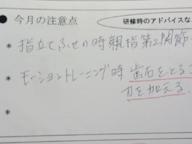 ● 今月の注意点
研修時のアドバイスな
• 指立てふせの時親指第2関節
• モーショントレーニング時 歯石をとる
力を加える。